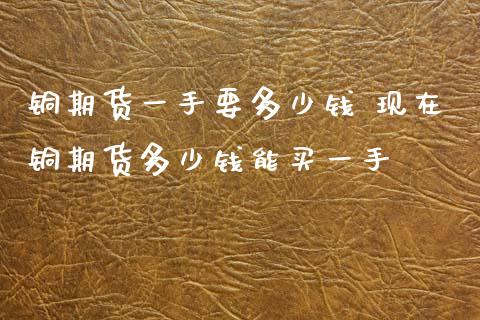 铜期货一手要多少钱 现在
铜期货多少钱能买一手